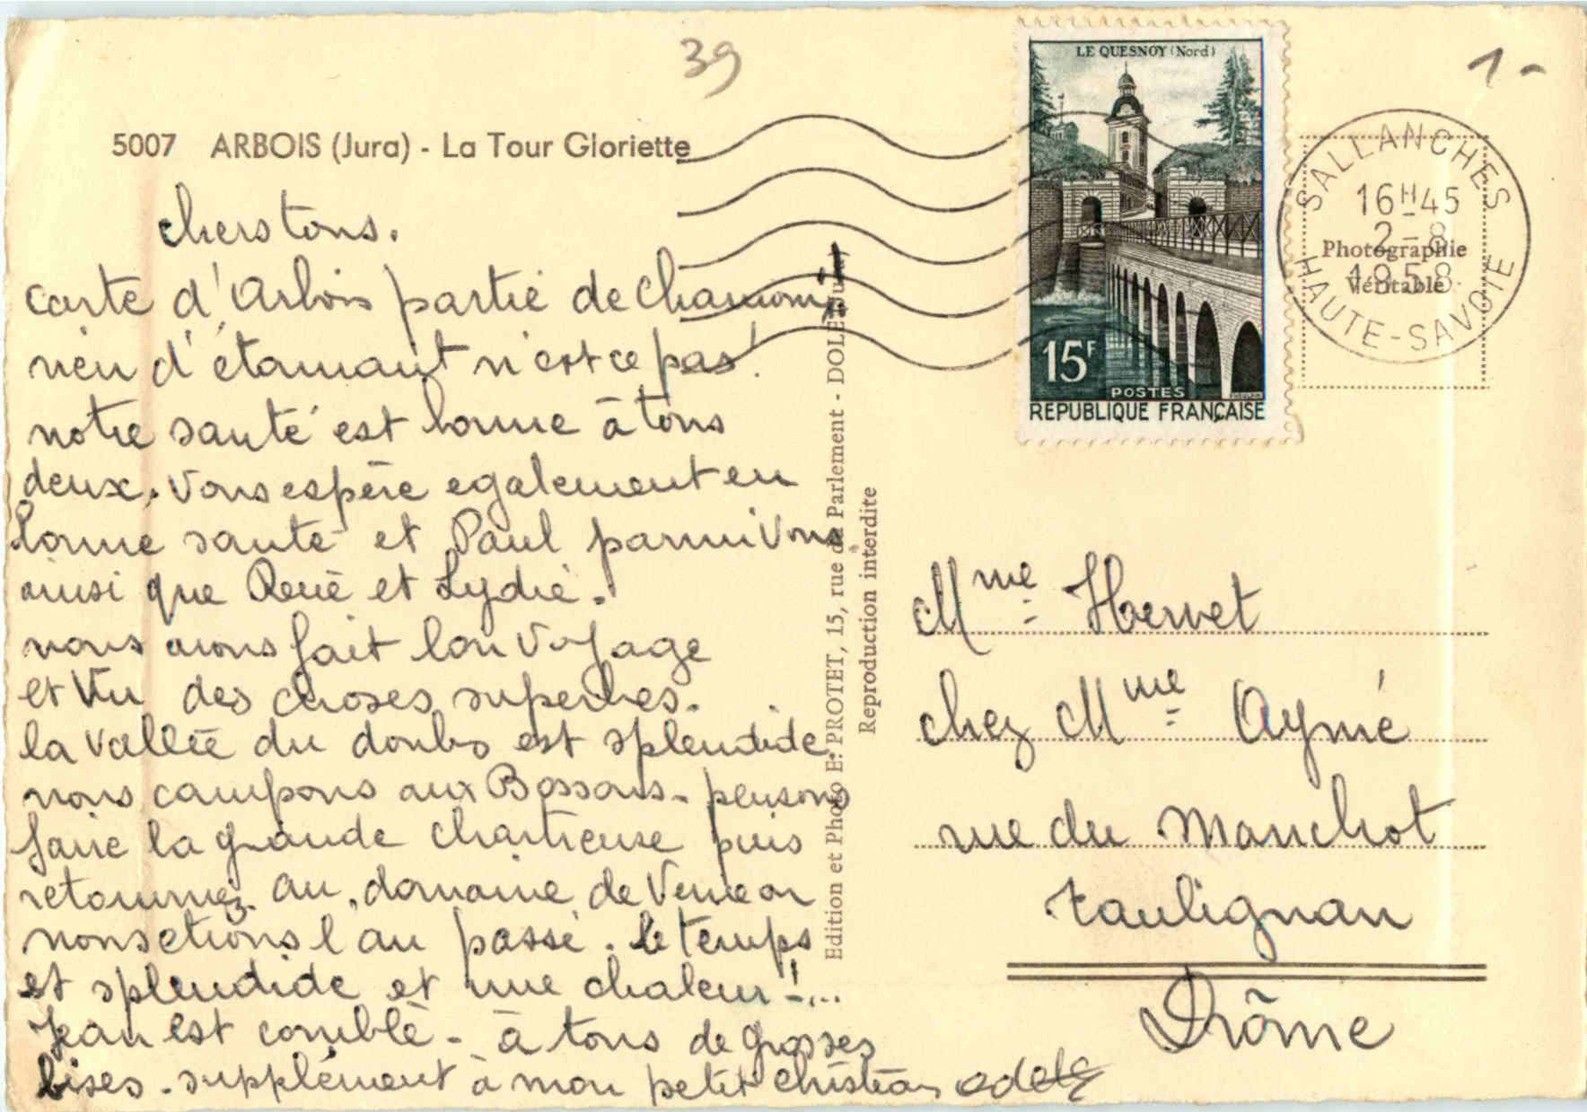 39
1-
5007 ARBOIS (Jura) - La Tour Gloriette
chers tous.
carte d'Arbois partie de Chamonix
rien d'étonnant n'est ce pas!
notre santé est bonne à tous
deux. Vous espère egalement en
bonne santé et Paul parmi vous
ainsi que René et Lydie.
nous avons fait bon voyage
et vu des choses superbes.
la vallée du doubs est splendide
nous campons aux Bossons. pensons
faire la grande chartreuse puis
retournez au domaine de
nous etions l'an passé. le temps
et splendide et une chaleur!...
Jean est comblé - à tous de grosses
bises. supplément à mon petit christian odette
Edition et Photo E. PROTET, 15, rue du Parlement - DOLE (Jura)
Reproduction interdite
LE QUESNOY (Nord)
15F
POSTES
REPUBLIQUE FRANÇAISE
SALLANCHES
16H45
2-8
1958
HAUTE-SAVOIE
Photographie
Véritable
Mme Hervet
chez Mme Aymé
rue du Manchot
taulignan
Drôme